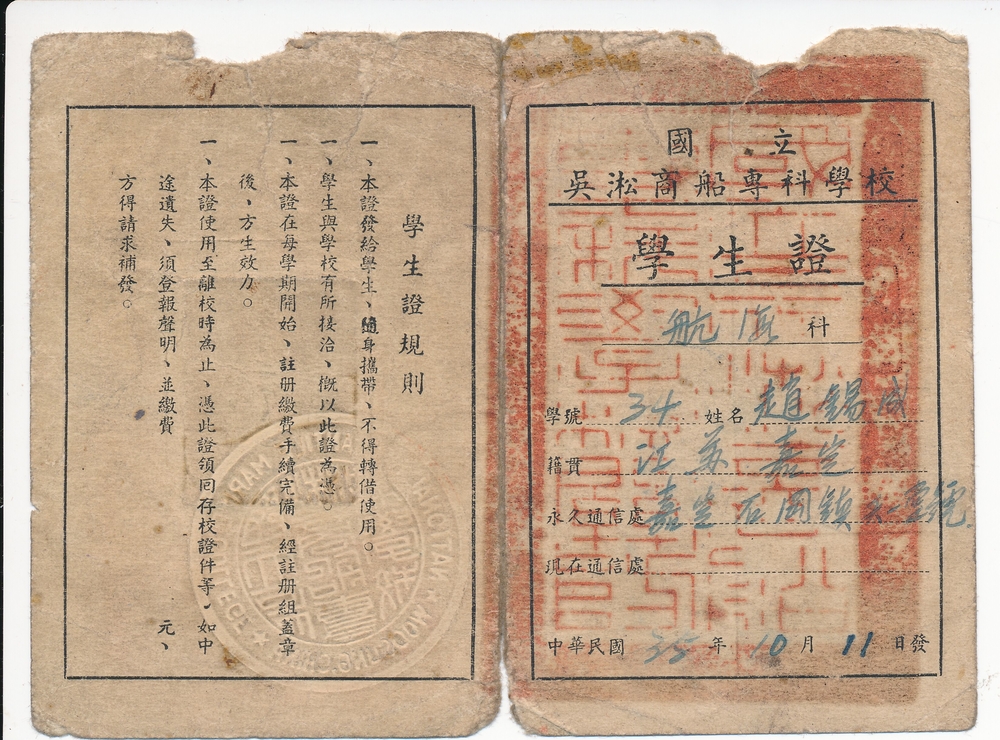 國立
吳淞商船專科學校
學生證
航海科
學號 34 姓名 趙錫成
籍貫 江蘇嘉定
永久通信處 嘉定石岡鎮
現在通信處
中華民國 35 年 10 月 11 日發
學生證規則
一、本證發給學生、隨身攜帶、不得轉借使用。
一、學生與學校有所接洽、概以此證為憑。
一、本證在每學期開始、註册繳費手續完備、經註册組蓋章
後、方生效力。
一、本證使用至離校時為止、憑此證領囘存校證件等、如中
途遺失、須登報聲明、並繳費 元、
方得請求補發。